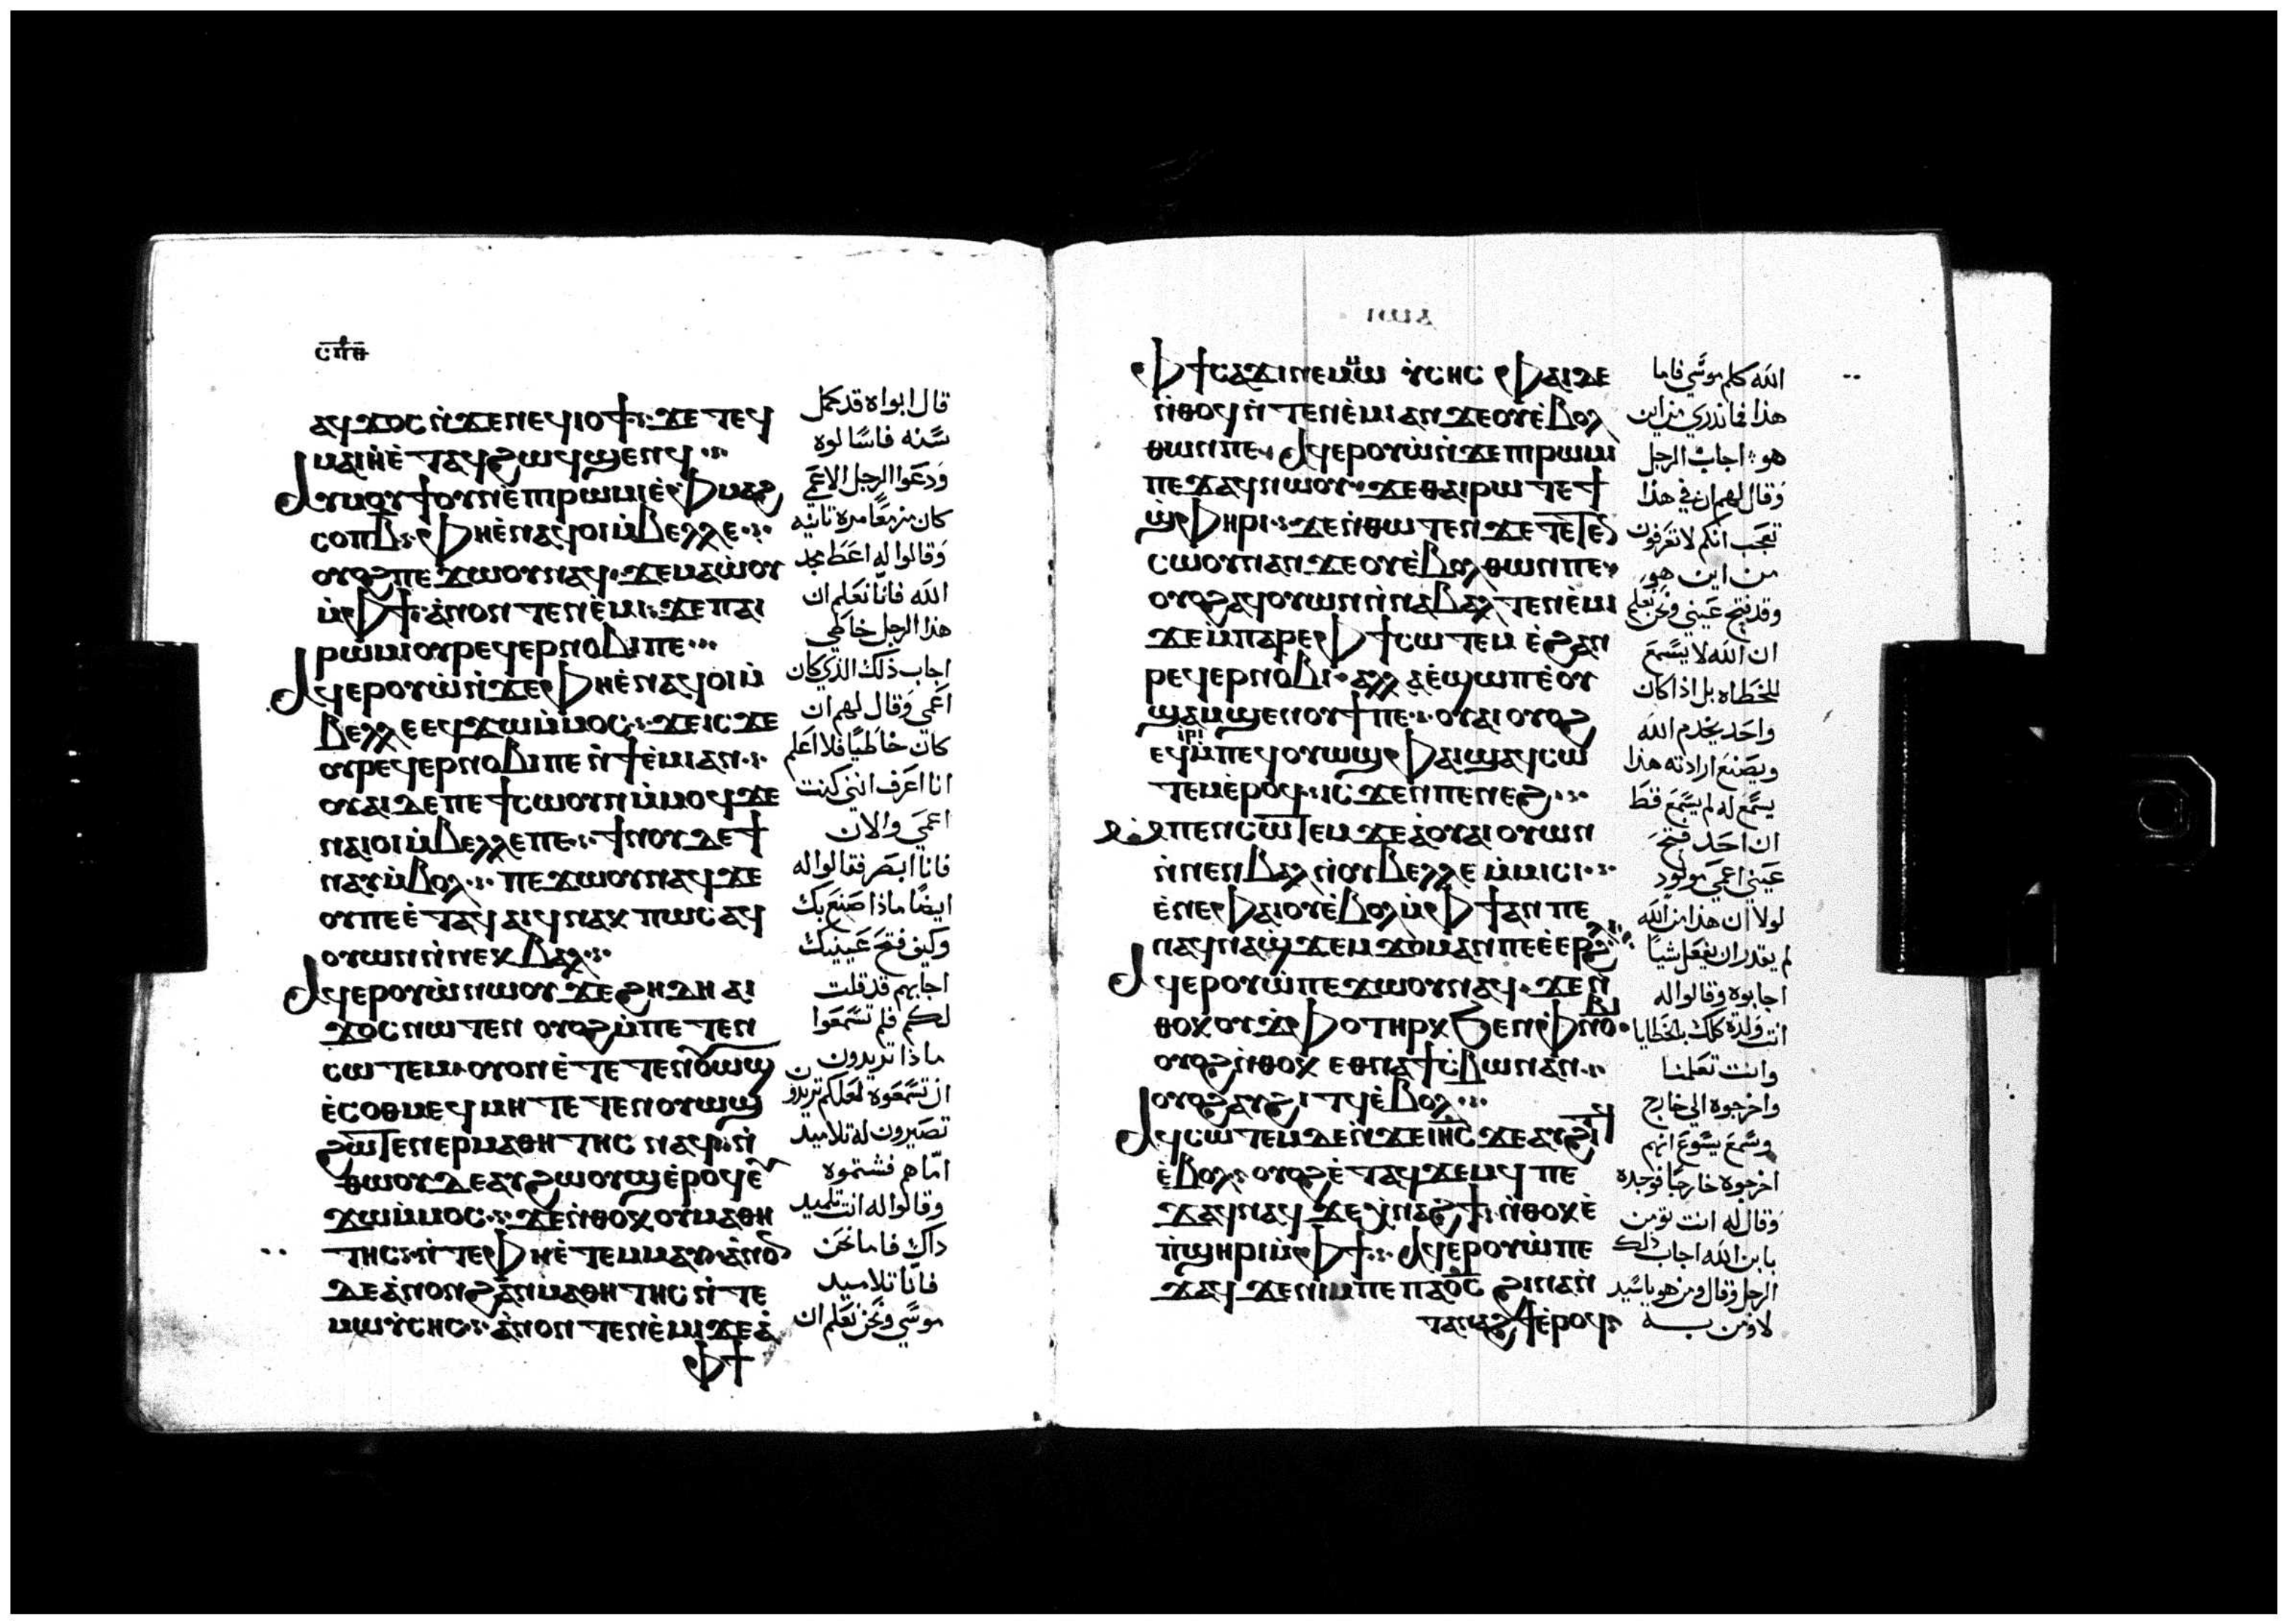 ⲥⲡⲑ
ⲁϥϫⲟⲥ ⲛ̀ϫⲉ ⲛⲉϥⲓⲟϯ ϫⲉ ⲧⲉϥ
ⲙⲁⲓⲏ ⲉ̀ⲧⲁϥ ϩⲱϥ ϣⲉⲛϥ
ⲁⲩⲙⲟⲩϯ ⲟⲩⲛ ⲉ̀ⲡⲓⲣⲱⲙⲓ ⲙ̀ⲫⲙⲁϩ
ⲥⲟⲡ ⲃ̅ ⲫⲏ ⲉ̀ⲛⲁϥⲟⲓ ⲙ̀ⲃⲉⲗⲗⲉ
ⲟⲩⲟϩ ⲡⲉϫⲱⲟⲩ ⲛⲁϥ ϫⲉ ⲙⲁⲱ̀ⲟⲩ
ⲙ̀ⲫϯ ⲁ̀ⲛⲟⲛ ⲧⲉⲛⲉ̀ⲙⲓ ϫⲉ ⲡⲁⲓ
ⲣⲱⲙⲓ ⲟⲩⲣⲉϥⲉⲣⲛⲟⲃⲓ ⲡⲉ
ⲁϥⲉⲣⲟⲩⲱ̀ ⲛ̀ϫⲉ ⲫⲏ ⲉ̀ⲛⲁϥⲟⲓ ⲙ̀
ⲃⲉⲗⲗⲉ ⲉϥϫⲱ ⲙ̀ⲙⲟⲥ ϫⲉ ⲓⲥϫⲉ
ⲟⲩⲣⲉϥⲉⲣⲛⲟⲃⲓ ⲡⲉ ⲛ̀ϯⲉ̀ⲙⲓ ⲁⲛ
ⲟⲩⲁⲓ ⲇⲉ ⲡⲉ ϯⲥⲱⲟⲩⲛ ⲙ̀ⲙⲟϥ ϫⲉ
ⲛⲁⲓⲟⲓ ⲙ̀ⲃⲉⲗⲗⲉ ⲡⲉ ϯⲛⲟⲩ ⲇⲉ ϯ
ⲛⲁⲩ ⲙ̀ⲃⲟⲗ ⲡⲉϫⲱⲟⲩ ⲛⲁϥ ϫⲉ
ⲟⲩ ⲡⲉ ⲉ̀ⲧⲁϥⲁⲓϥ ⲛⲁⲕ ⲡⲱⲥ ⲁϥ
ⲟⲩⲱⲛ ⲛ̀ⲛⲉⲕⲃⲁⲗ
ⲁϥⲉⲣⲟⲩⲱ̀ ⲛⲱⲟⲩ ϫⲉ ϩⲏⲇⲏ ⲁⲓ
ϫⲟⲥ ⲛⲱⲧⲉⲛ ⲟⲩⲟϩ ⲙ̀ⲡⲉⲧⲉⲛ
ⲥⲱⲧⲉⲙ ⲟⲩⲟⲛ ⲉ̀ⲧⲉⲧⲉⲛⲟⲩⲱϣ
ⲉ̀ⲥⲟⲑⲙⲉϥ ⲙⲏ ⲧⲉⲧⲉⲛⲟⲩⲱϣ
ϩⲱⲧⲉⲛ ⲉⲣⲙⲁⲑⲏⲧⲏⲥ ⲛⲁϥ ⲛ̀
ⲑⲱⲟⲩ ⲇⲉ ⲁⲩϩⲱⲟⲩϣ ⲉ̀ⲣⲟϥ ⲉⲩ
ϫⲱ ⲙ̀ⲙⲟⲥ ϫⲉ ⲛ̀ⲑⲟⲕ ⲟⲩⲙⲁⲑⲏ
ⲧⲏⲥ ⲛ̀ⲧⲉ ⲫⲏ ⲉ̀ⲧⲉⲙⲙⲁⲩ ⲁ̀ⲛⲟⲛ
ⲇⲉ ⲁ̀ⲛⲟⲛ ϩⲁⲛⲙⲁⲑⲏⲧⲏⲥ ⲛ̀ⲧⲉ
ⲙⲱⲩ̀ⲥⲏⲥ ⲁ̀ⲛⲟⲛ ⲧⲉⲛⲉ̀ⲙⲓ ϫⲉ ⲁ̀
ⲫϯ
قال ابواه قد كمل
سنه فاسالوه
ودعوا الرجل الاعمى
كان مرة ثانيه
وقالوا له اعط مجد
الله فانا نعلم ان
هذا الرجل خاطي
اجاب ذلك الذي كان
اعمى وقال لهم ان
كان خاطيا فلا اعلم
انا اعرف انني كنت
اعمى والان
فانا ابصر فقالوا له
ايضا ماذا صنع بك
وكيف فتح عينيك
اجابهم قد قلت
لكم فلم تسمعوا
ماذا تريدون
ان تسمعوه لعلكم تريدون
تصيرون له تلاميد
اما هم فشتموه
وقالوا له انت تلميد
داك فاما نحن
فانا تلاميد
موسى ونحن نعلم ان
ⲫϯ ⲥⲁϫⲓ ⲛⲉⲙ ⲙⲱⲩ̀ⲥⲏⲥ ⲫⲁⲓ ⲇⲉ
ⲛ̀ⲑⲟϥ ⲛ̀ⲧⲉⲛⲉ̀ⲙⲓ ⲁⲛ ϫⲉ ⲟⲩⲉ̀ⲃⲟⲗ
ⲑⲱⲛ ⲡⲉ ⲁϥⲉⲣⲟⲩⲱ̀ ⲛ̀ϫⲉ ⲡⲓⲣⲱⲙⲓ
ⲡⲉϫⲁϥ ⲛⲱⲟⲩ ϫⲉ ⲑⲁⲓ ⲣⲱ ⲧⲉ ϯ
ϣ̀ⲫⲏⲣⲓ ϫⲉ ⲛ̀ⲑⲱⲧⲉⲛ ϫⲉ ⲧⲉⲧⲉⲛ
ⲥⲱⲟⲩⲛ ⲁⲛ ϫⲉ ⲟⲩⲉ̀ⲃⲟⲗ ⲑⲱⲛ ⲡⲉ
ⲟⲩⲟϩ ⲁϥⲟⲩⲱⲛ ⲛ̀ⲛⲁⲃⲁⲗ ⲧⲉⲛⲉ̀ⲙⲓ
ϫⲉ ⲙ̀ⲡⲁⲣⲉ ⲫϯ ⲥⲱⲧⲉⲙ ⲉ̀ϩⲁⲛ
ⲣⲉϥⲉⲣⲛⲟⲃⲓ ⲁⲗⲗⲁ ⲉ̀ϣⲱⲡ ⲉ̀ⲟⲩ
ϣⲁⲙϣⲉⲛⲟⲩϯ ⲡⲉ ⲟⲩⲁⲓ ⲟⲩⲟϩ
ⲉϥⲓⲣⲓ ⲙ̀ⲡⲉϥⲟⲩⲱϣ ⲫⲁⲓ ϣⲁϥⲥⲱ
ⲧⲉⲙ ⲉ̀ⲣⲟϥ ⲓⲥϫⲉⲛ ⲡⲉⲛⲉϩ
ⲙⲡⲉⲛⲥⲱⲧⲉⲙ ϫⲉ ⲁ̀ ⲟⲩⲁⲓ ⲟⲩⲱⲛ
ⲛ̀ⲛⲉⲛⲃⲁⲗ ⲛ̀ⲟⲩⲃⲉⲗⲗⲉ ⲙ̀ⲙⲓⲥⲓ
ⲉ̀ⲛⲉ ⲫⲁⲓ ⲟⲩⲉ̀ⲃⲟⲗ ⲙ̀ⲫϯ ⲁⲛ ⲡⲉ
ⲛⲁϥⲛⲁϣ̀ϫⲉⲙϫⲟⲙ ⲁⲛ ⲡⲉ ⲉ̀ⲉⲣ ϩⲗⲓ
ⲁϥⲉⲣⲟⲩⲱ̀ ⲡⲉϫⲱⲟⲩ ⲛⲁϥ ϫⲉ ⲛ
ⲑⲟⲕ ⲟⲩϫⲫⲟ ⲧⲏⲣⲕ ϧⲉⲛ ⲫⲛⲟⲃⲓ
ⲟⲩⲟϩ ⲛ̀ⲑⲟⲕ ⲉⲑⲛⲁϯⲥ̀ⲃⲱ ⲛⲁⲛ
ⲟⲩⲟϩ ⲁⲩϩⲓⲧϥ ⲉ̀ⲃⲟⲗ
ⲁϥⲥⲱⲧⲉⲙ ⲇⲉ ⲛ̀ϫⲉ ⲓⲏⲥ ϫⲉ ⲁⲩϩⲓⲧϥ
ⲉ̀ⲃⲟⲗ ⲟⲩⲟϩ ⲉ̀ⲧⲁϥϫⲉⲙϥ ⲡⲉ
ϫⲁϥ ⲛⲁϥ ϫⲉ ⲭ̀ⲛⲁϩϯ ⲛ̀ⲑⲟⲕ ⲉ̀
ⲡ̀ϣⲏⲣⲓ ⲙ̀ⲫϯ ⲁϥⲉⲣⲟⲩⲱ̀ ⲡⲉ
ϫⲁϥ ϫⲉ ⲛⲓⲙ ⲡⲉ ⲡⲁⲟ̅ⲥ̅ ϩⲓⲛⲁ ⲛ̀
ⲧⲁⲛⲁϩϯ ⲉ̀ⲣⲟϥ
الله كلم موسى فاما
هذا فما ندري من اين
هو اجاب الرجل
وقال لهم ان في هذا
تعجب انكم لا تعرفون
من اين هو
وقد فتح عيني ونحن نعلم
ان الله لا يسمع
للخطاه بل اذا كان
واحد يخدم الله
ويصنع ارادته هذا
يسمع له لم يسمع قط
ان احد فتح
عيني اعمى مولود
لولا ان هذا من الله
لم يقدر ان يفعل شيا
اجابوه وقالوا له
انت ولدة كلك بالخطايا
وانت تعلمنا
واخرجوه الي خارج
وسمع يسوع انهم
اخرجوه خارجا فوجده
وقال له انت تومن
بابن الله اجاب ذلك
الرجل وقال ومن هو ياسيد
لاومن به